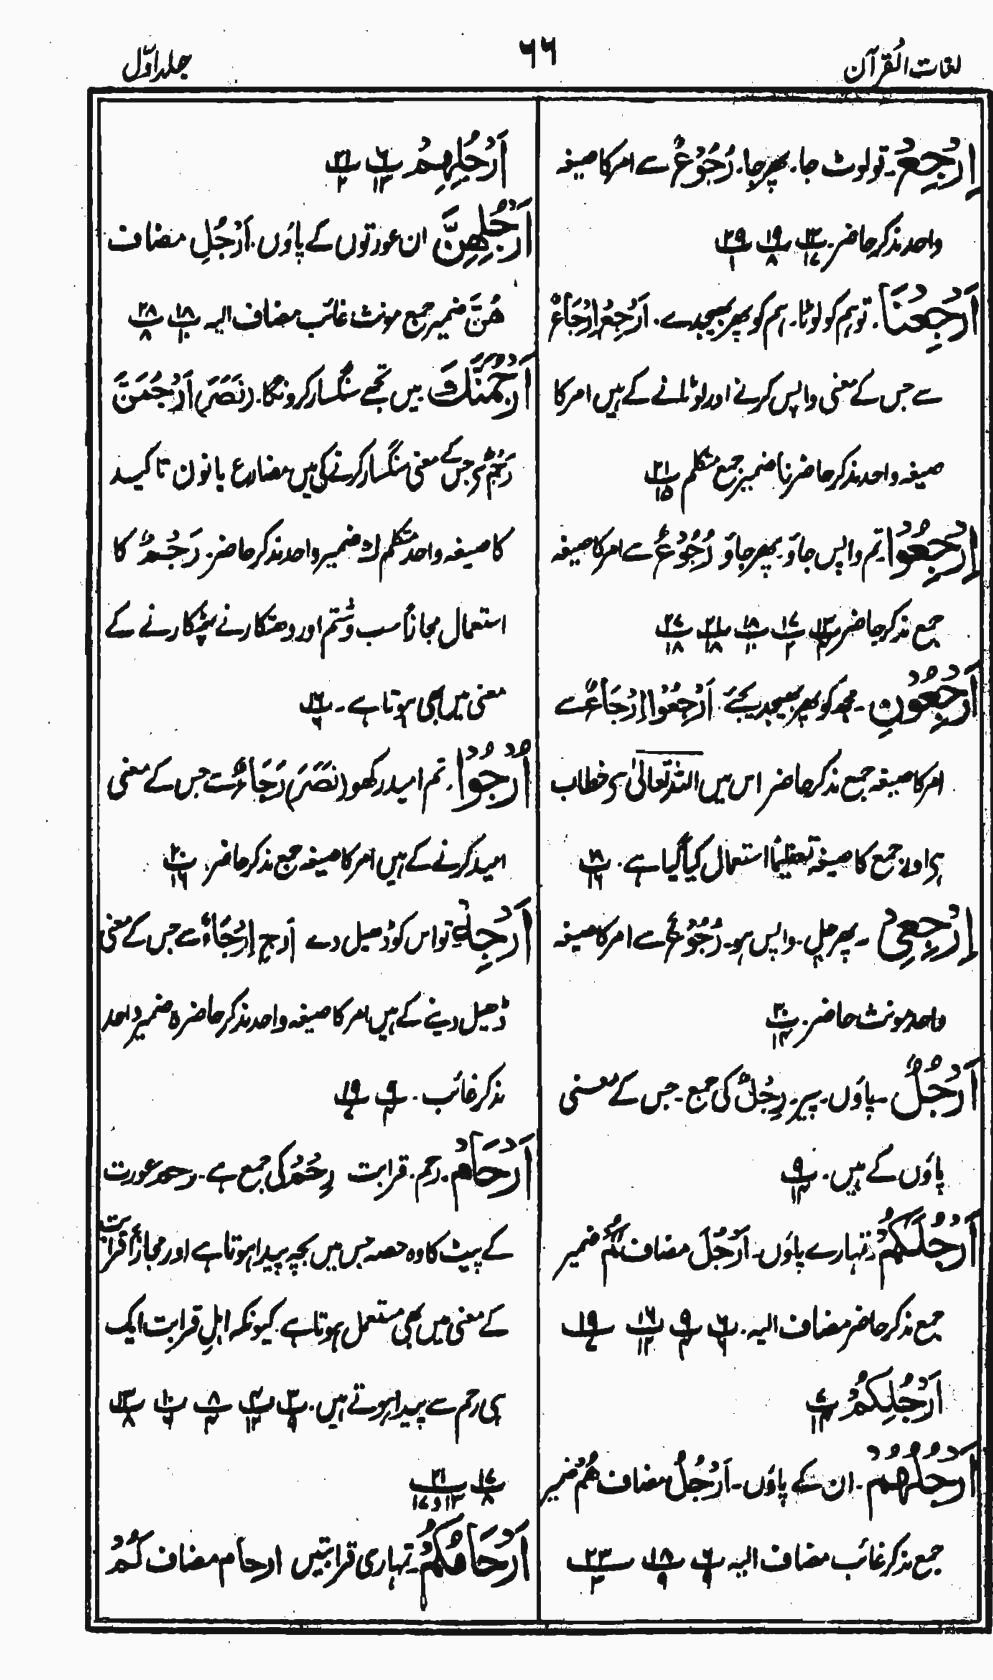 لغات القرآن
۶۶
جلد اوّل
اِرْجِعْ۔ تو لوٹ جا۔ پھر جا۔ رُجُوْعٌ سے امر کا صیغہ
واحد مذکر حاضر۔
اَرْجِعْنَا۔ تو ہم کو لوٹا۔ ہم کو پھر بھیجدے۔ اَرْجِعْ اِرْجَاعٌ
سے جس کے معنی واپس کرنے اور لوٹانے کے ہیں امر کا
صیغہ واحد مذکر حاضر نا ضمیر جمع متکلم
اِرْجِعُوْا تم واپس جاؤ۔ پھر جاؤ رُجُوْعٌ سے امر کا صیغہ
جمع مذکر حاضر
اَرْجِعُوْنِ۔ مجھ کو پھر بھیجدیجئے اَرْجِعُوْا اِرْجَاعٌ سے
امر کا صیغہ جمع مذکر حاضر اس میں اللہ تعالیٰ ہی خطاب
ہے اور جمع کا صیغہ تعظیماً استعمال کیا گیا ہے۔
اِرْجِعِیْ۔ پھر چل۔ واپس ہو۔ رُجُوْعٌ سے امر کا صیغہ
واحد مونث حاضر۔
اَرْجُلٌ۔ پاؤں۔ پیر۔ رِجْلٌ کی جمع۔ جس کے معنی
پاؤں کے ہیں۔
اَرْجُلَکُمْ۔ تمہارے پاؤں۔ اَرْجُلَ مضاف کُمْ ضمیر
جمع مذکر حاضر مضاف الیہ۔
اَرْجُلِکُمْ
اَرْجُلُھُمْ۔ ان کے پاؤں۔ اَرْجُلُ مضاف ھُمْ ضمیر
جمع مذکر غائب مضاف الیہ
اَرْجُلِھِمْ
اَرْجُلِھِنَّ ان عورتوں کے پاؤں۔ اَرْجُلِ مضاف
ھُنَّ ضمیر جمع مونث غائب مضاف الیہ
اَرْجُمَنَّكَ میں تجھے سنگسار کرونگا۔ (نَصَرَ) اَرْجُمَنَّ
رَجْمٌ سے جس کے معنی سنگسار کرنے کی ہیں مضارع بانون تاکید
کا صیغہ واحد متکلم ك ضمیر واحد مذکر حاضر۔ رَجْمٌ کا
استعمال مجازاً سب و شتم اور دھتکارنے پھٹکارنے کے
معنی میں بھی ہوتا ہے۔
اُرْجُوْا۔ تم امید رکھو (نَصَرَ) رَجَاءٌ سے جس کے معنی
امید کرنے کے ہیں امر کا صیغہ جمع مذکر حاضر
اَرْجِهْ تو اس کو ڈھیل دے اَرْجِ اِرْجَاءٌ سے جس کے معنی
ڈھیل دینے کے ہیں امر کا صیغہ واحد مذکر حاضر ہ ضمیر واحد
مذکر غائب۔
اَرْحَام۔ رحم۔ قرابت رِحْمٌ کی جمع ہے۔ رحم عورت
کے پیٹ کا وہ حصہ جس میں بچہ پیدا ہوتا ہے اور مجازاً قرابت
کے معنی میں بھی مستعمل ہوتا ہے۔ کیونکہ اہل قرابت ایک
ہی رحم سے پیدا ہوتے ہیں۔
اَرْحَامُکُمْ تمہاری قرابتیں ارحام مضاف کُمْ